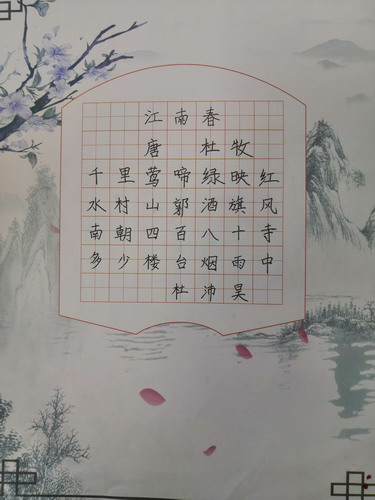 江南春
唐 杜牧
千里莺啼绿映红
水村山郭酒旗风
南朝四百八十寺
多少楼台烟雨中
杜沛昊